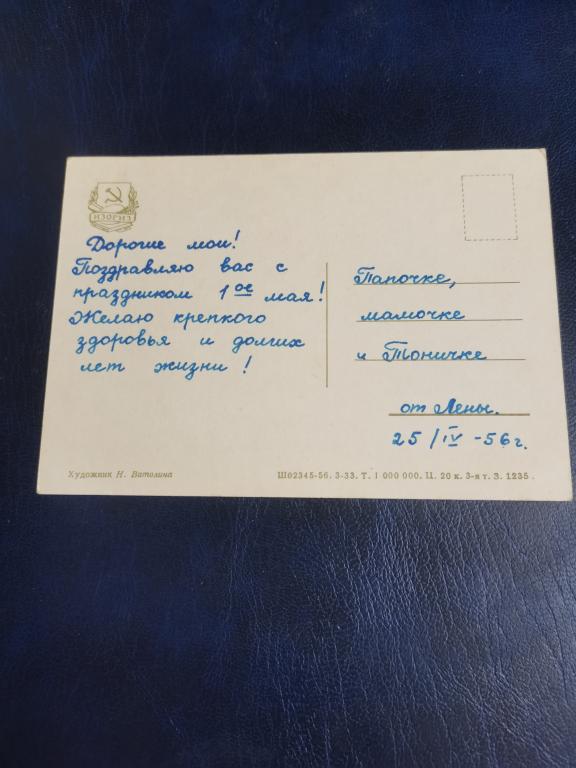 ИЗОГИЗ
Дорогие мои!
Поздравляю вас с
праздником 1ое мая!
Желаю крепкого
здоровья и долгих
лет жизни!
Папочке,
мамочке
и Тоничке
от Лены.
25/IV -56 г.
Художник Н. Ватолина
Ш02345-56. 3-33. Т. 1 000 000. Ц. 20 к. 3-я т. З. 1235.